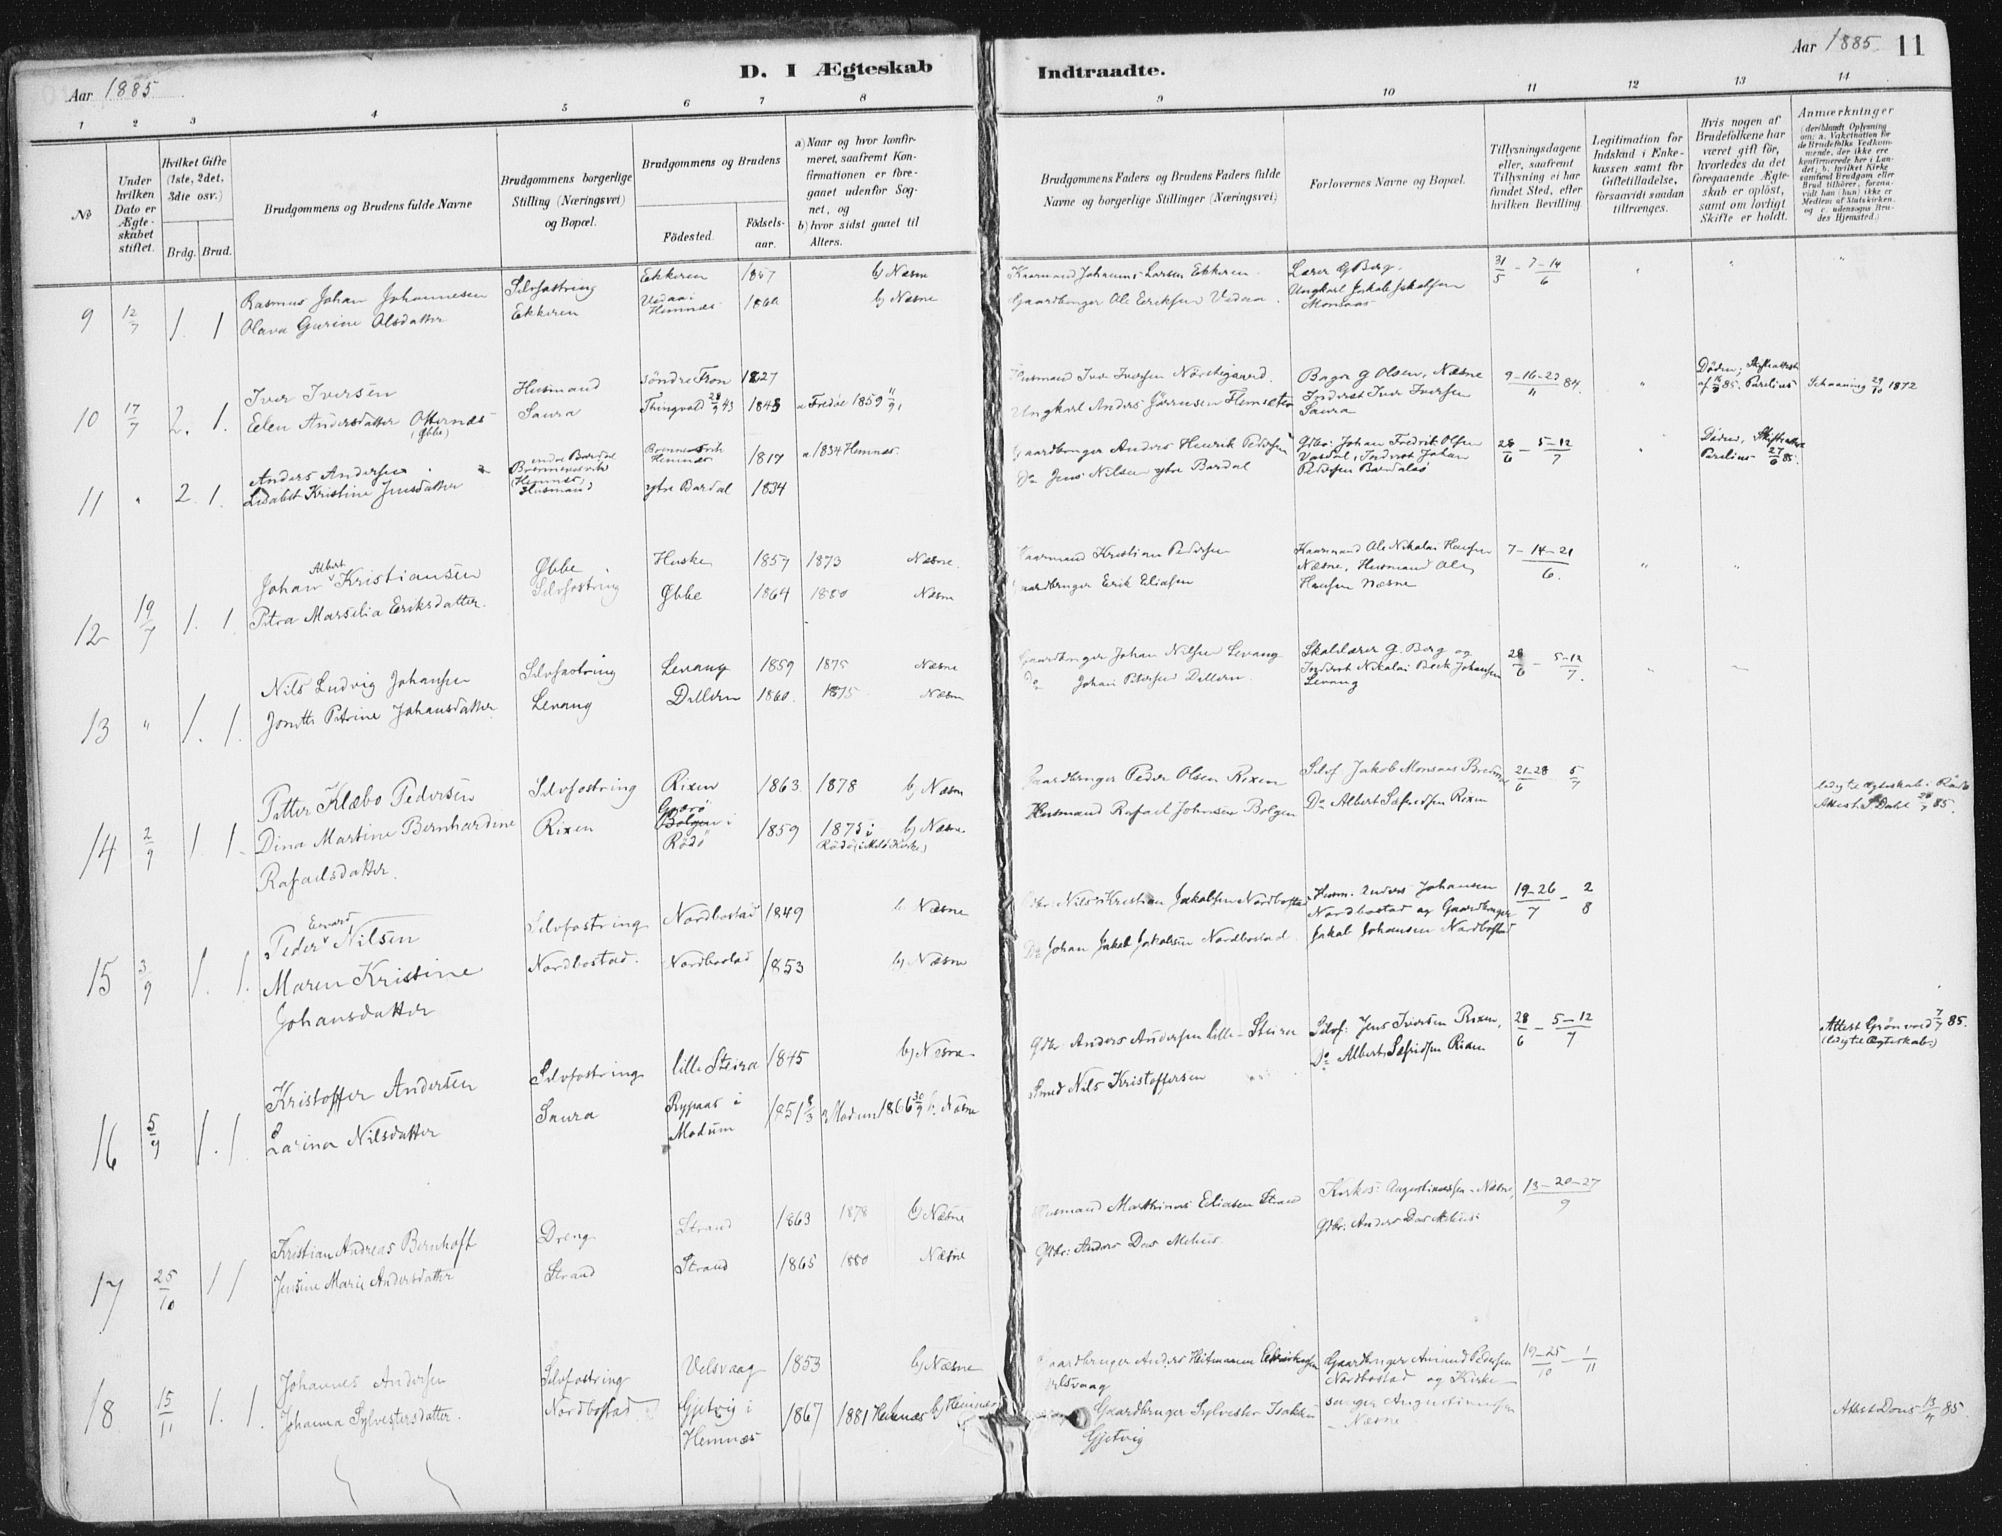 Aar 1885
D. I Ægteskab
Indtraadte.
Aar 1885 11
1 2 3 4 5 6 7 8 9 10 11 12 13 14
№
Under hvilken Dato er Ægteskabet stiftet.
Hvilket Gifte (1ste, 2det, 3die osv.)
Brdg. Brud.
Brudgommens og Brudens fulde Navne
Brudgommens borgerlige Stilling (Næringsvei) og Bopæl.
Brudgommens og Brudens
Födested. Födselsaar.
a) Naar og hvor konfirmeret, saafremt Konfirmationen er foregaaet udenför Sognet, og
b) hvor sidst gaaet til Alters.
Brudgommens Faders og Brudens Faders fulde Navne og borgerlige Stillinger (Næringsvei)
Forlovernes Navne og Bopæl.
Tillysningsdagene eller, saafremt Tillysning ei har fundet Sted, efter hvilken Bevilling.
Legitimation for Indskud i Enkekassen samt for Giftetilladelse, forsaavidt saadan tiltrænges.
Hvis nogen af Brudefolkene har været gift för, hvorledes da det foregaaende Ægteskab er oplöst, samt om lovligt Skifte er holdt.
Anmærkninger (deriblandt Oplysning om: a. Vakcination for de Brudefolks Vedkommende, der ikke ere konfirmerede her i Landet; b. hvilket Kirkesamfund Brudgom eller Brud tilhörer, forsaavidt han (hun) ikke er Medlem af Statskirken. og c. udensogns Brudes Hjemsted.)
9 12/7 1. 1
Rasmus Johan Johannesen Selvfostring Ekkeren 1857 b) Næsne
Olava Gurine Olsdatter Ekkeren Hemnæs 1860 b) Næsne
Kaarmand Johannes Larsen Ekkeren. Lærer G Borg. 31/5 - 7-14/6
Gaardbruger Ole Eriksen
10 17/7 2. 1.
Iver Iversen Husmand söndre Fron 1827
Elen Andersdatter Saura Thingvold 28/9 43 1843 a Fredöe 1859
Husmand Iver Iversen G Olsen, Næsne 9-16-23/11 84.
Ungkarl Anders Inderst Iver Iversen Saura
Döden, 1872
11 " 2. 1.
Anders Andersen Hemnæs 1817 a. 1834 Hemnæs.
Lisabet Kristine Jensdatter Husmand ytre Bardal 1834
Gaardbruger Anders Henrik Pedersen Gdbr: Johan Fredrik Olsen 28/6 - 5-12/7
Do Jens Nilsen ytre Bardal Inderst Johan Pedersen
Döden,
12 19/7 1. 1.
Johan Albert Kristiansen Øbbe Huske 1857 1873 Næsne.
Petra Marselia Eriksdatter. Selvfostring Øbbe 1864 1880 Næsne
Kaarmand Kristian Pedersen Kaarmand Ole Nikolai Hansen 7-14-21/6.
Gaardbruger Erik Eliasen Næsne, Husmand Ole Hansen Næsne
13 " 1. 1.
Nils Ludvig Johansen Selvfostring Levang 1859 1875 Næsne
Jonette Petrine Johansdatter Levang Dillern 1860. 1875 Næsne
Gaardbruger Johan Nilsen Levang Skolelærer G. Borg og 28/6 - 5-12/7.
Do Johan Petersen Dillern. Inderst Nikolai Beck Johansen Levang
14 2/9 1 1.
Petter Klæbo Pedersen Selvfostring Rixen 1863. 1878 b) Næsne
Dina Martine Bernhardine Rafaelsdatter. Rixen Bolgen i Rödö 1859 1875 i Rödö b) Næsne
Gaardbruger Peder Olsen Rixen Selvf Jakob Monsaas 21-28/6 5/7
Husmand Rafael Johnsen Bolgen Do Albert Sefridsen Rixen
ledig til Ægteskab i Rödö
Attest Dahl 85.
15 3/9 1. 1.
Peder Edvard Nilsen Selvfostring Nordbostad 1849 b Næsne
Maren Kristine Johansdatter Nordbostad. Nordbostad 1853 b) Næsne
Gdbr: Nils Kristian Jakobsen Nordbostad Husm. Anders Johansen 19-26/7 - 2/8
Do Johan Jakob Jakobsen Nordbostad. Nordbostad og Gaardbruger Jakob Johansen Nordbostad
16 5/9 1. 1.
Kristoffer Andersen Selvfostring lille Steira 1845 b) Næsne
Larina Nilsdatter Saura Rypaas i Modum 1851 8/3 a Modum 1866 30/9 b. Næsne
Gdbr Anders Andersen Lille-Steira Selvf: Jens Iversen Rixen, 28/6 - 5-12/7
Smed Nils Kristoffersen Do Albert Sefridsen Rixen
Attest Grönvold 7/7 85. (ledig til Ægteskab)
17 25/10 1 1
Kristian Andreas Bernhoft Dreng Strand 1863 1878 b) Næsne
Jensine Marie Andersdatter Strand Strand 1865 1880 Næsne
Husmand Marthinus Eliasen Strand Kirkes: Augustinussen Næsne 13-20-27/9
Gdbr: Anders Das Mehus. Gdbr: Anders Das Mehus:
18 15/11 1. 1.
Johannes Andersen Selvfostring Velsvaag 1853 b) Næsne
Johanna Sylvestersdatter. Nordbostad Gjetvig i Hemnæs 1867 1881 Hemnæs b) Hemnæs
Gaardbruger Anders Heitmann Velsvaag Gaardbruger Amund Pedersen 19-25/10 - 1/11
Gaardbruger Sylvester Isaksen Gjetvig Nordbostad og Kirkesanger Augustinussen Næsne
Attest Dons 85.